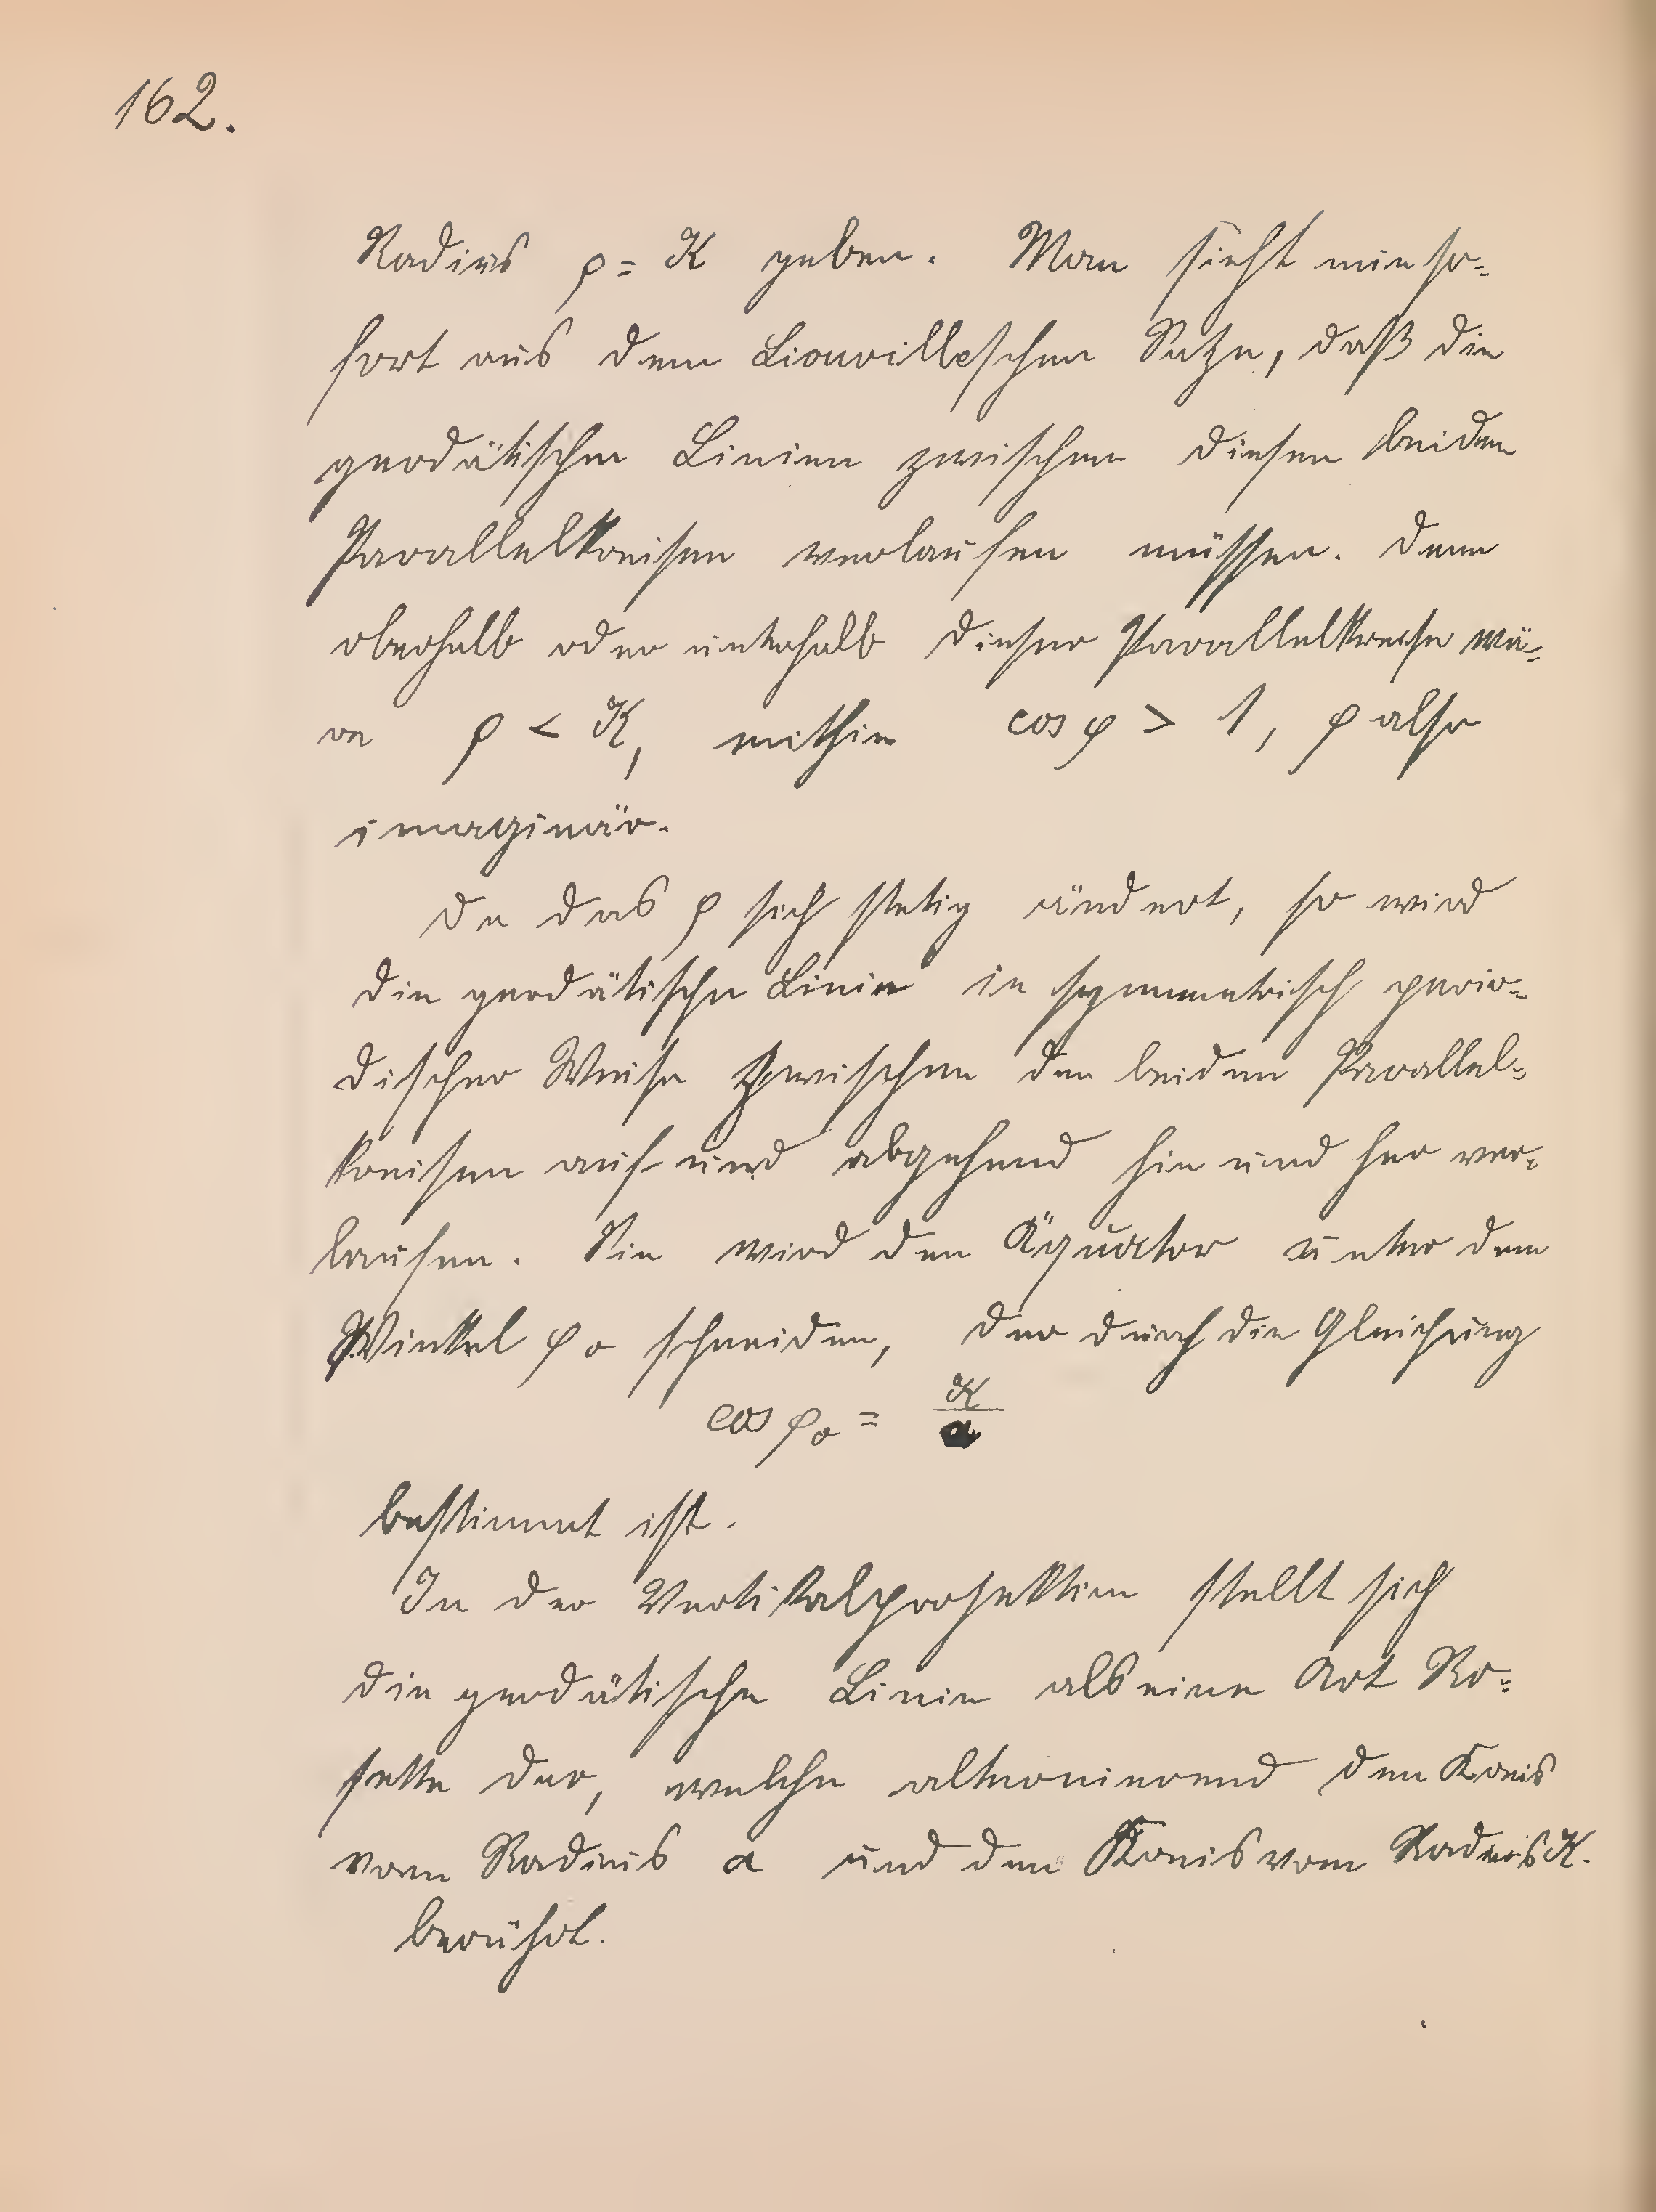 162.
Radius ρ = K geben. Man sieht nun so-
fort aus dem Liouvilleschen Satze, daß die
geodätischen Linien zwischen diesen beiden
Parallelkreisen verlaufen müssen. Denn
oberhalb oder unterhalb dieser Parallelkreise wä-
re ρ < K, mithin cos φ > 1, φ also
imaginär.
Da das ρ sich stetig ändert, so wird
die geodätische Linie in symmetrisch perio-
discher Weise zwischen den beiden Parallel-
kreisen auf- und abgehend hin und her ver-
laufen. Sie wird den Äquator unter dem
Winkel φ₀ schneiden, der durch die Gleichung
cos φ₀ = K/a
bestimmt ist.
In der Vertikalprojektion stellt sich
die geodätische Linie als eine Art Ro-
sette dar, welche alternierend den Kreis
vom Radius a und den Kreis vom Radius K.
berührt.